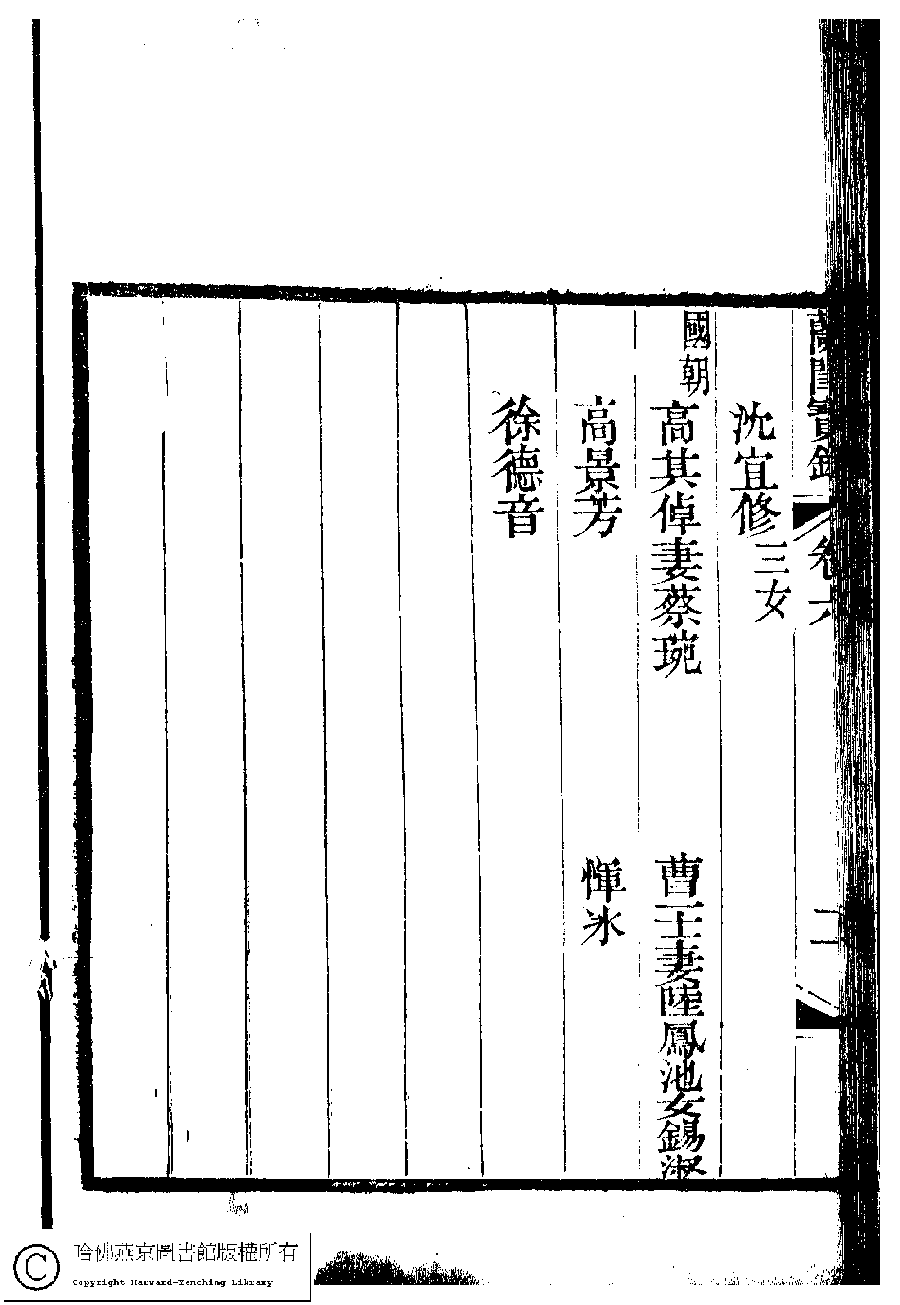 蘭閨寶錄 卷六 二
沈宜修三女
國朝
高其倬妻蔡琬 曹一士妻陸鳳池女錫淑
高景芳 惲冰
徐德音
哈佛燕京圖書館版權所有
Copyright Harvard-Yenching Library